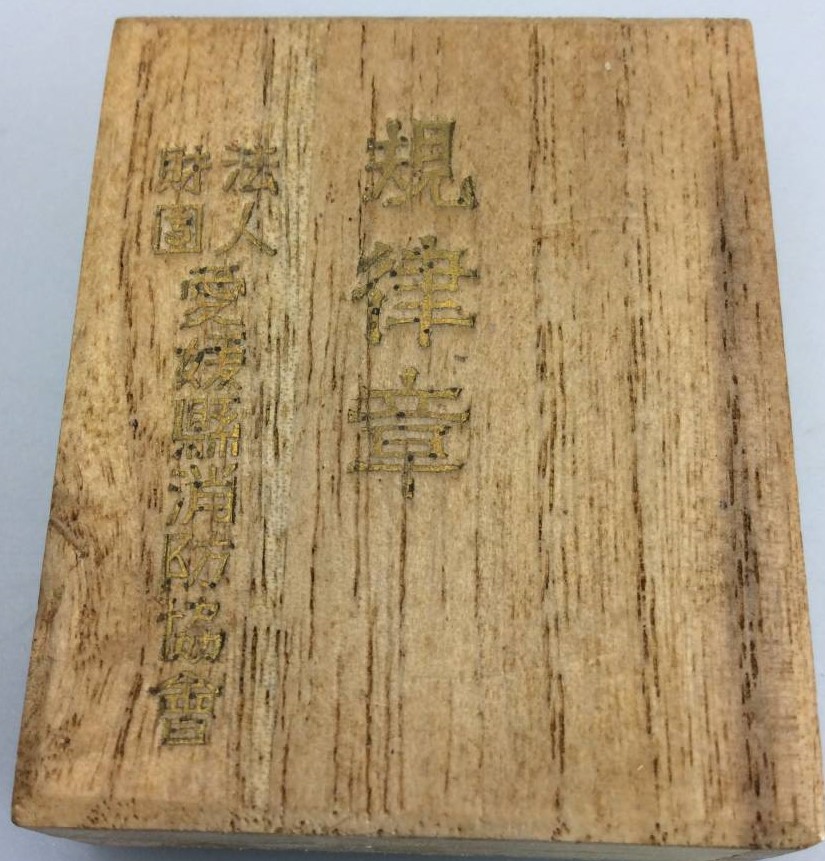 規律章
財團法人愛媛縣消防協會